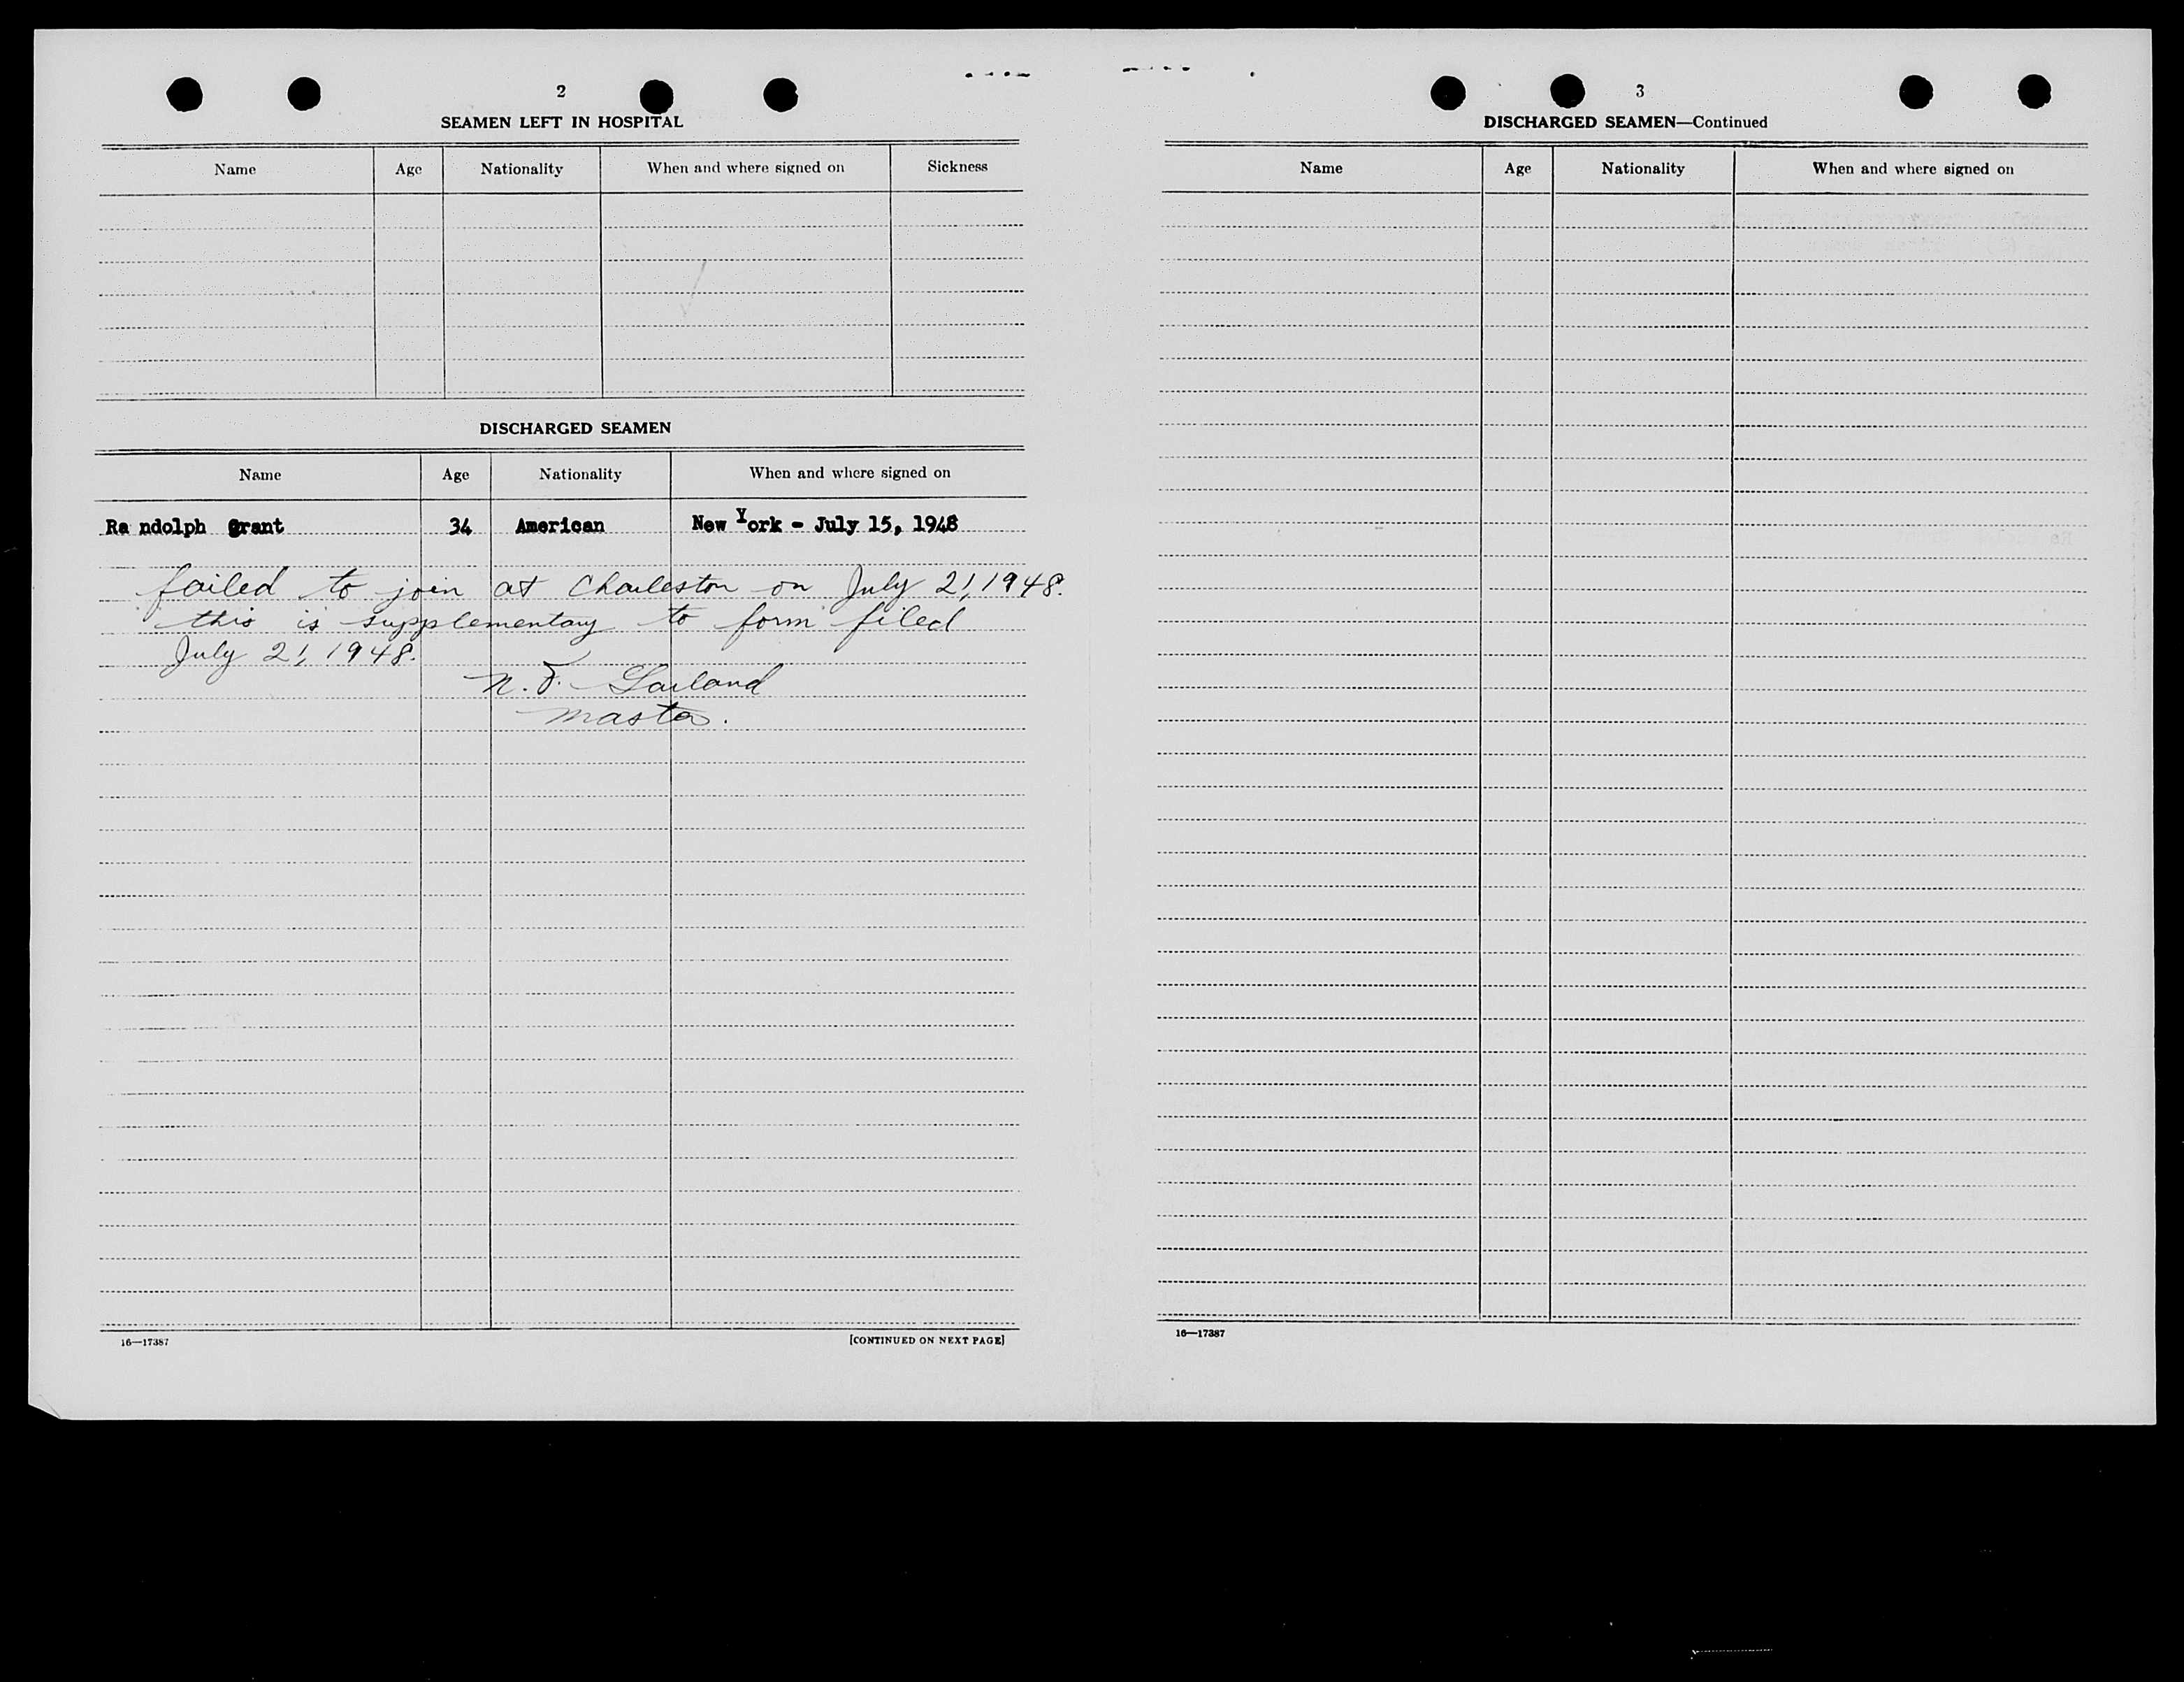 2
SEAMEN LEFT IN HOSPITAL
Name Age Nationality When and where signed on Sickness
DISCHARGED SEAMEN
Name Age Nationality When and where signed on
Ra ndolph Grant 34 American New York - July 15, 1948
failed to join at Charleston on July 21, 1948.
this is supplementary to form filed
July 21, 1948.
N. F.
master.
16—17387 [CONTINUED ON NEXT PAGE]
3
DISCHARGED SEAMEN—Continued
Name Age Nationality When and where signed on
16—17387